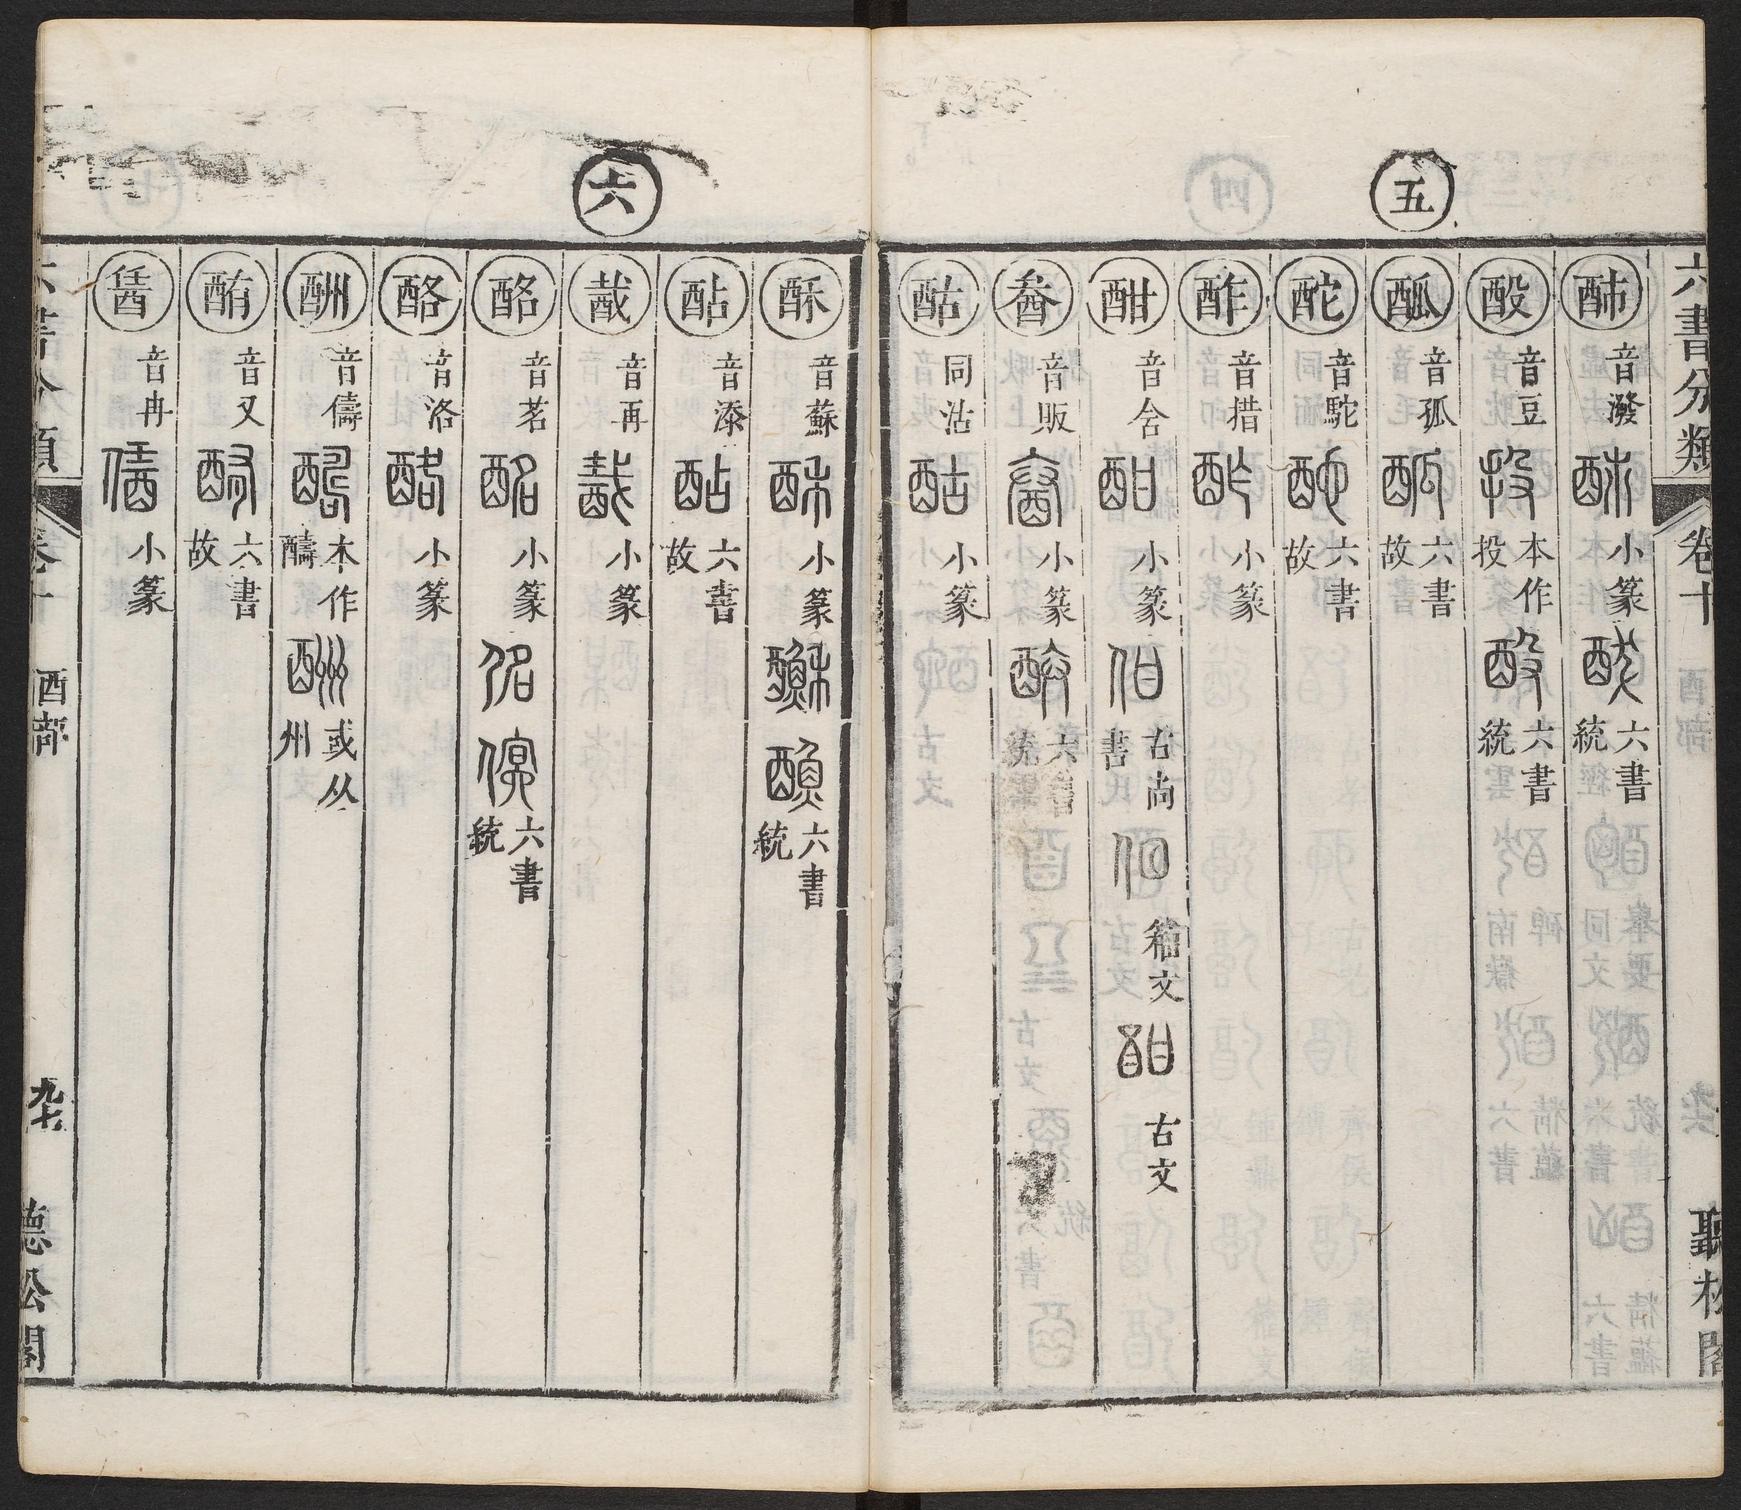 六書分類 卷十 酉部 聽松閣
五
酺 音潑 小篆 六書統
酘 音豆 本作投 六書統
𨠋 音孤 六書故
酡 音駝 六書故
酢 音措 小篆
酣 音含 小篆 古尚書 籀文 古文
音販 小篆 六書統
酤 同沽 小篆
六
酥 音蘇 小篆 六書統
酟 音添 六書故
酨 音再 小篆
酩 音茗 小篆 六書統
酪 音洛 小篆
酬 音儔 本作醻 或从州
酭 音又 六書故
音冉 小篆
六書分類 卷十 酉部 九七 聽松閣